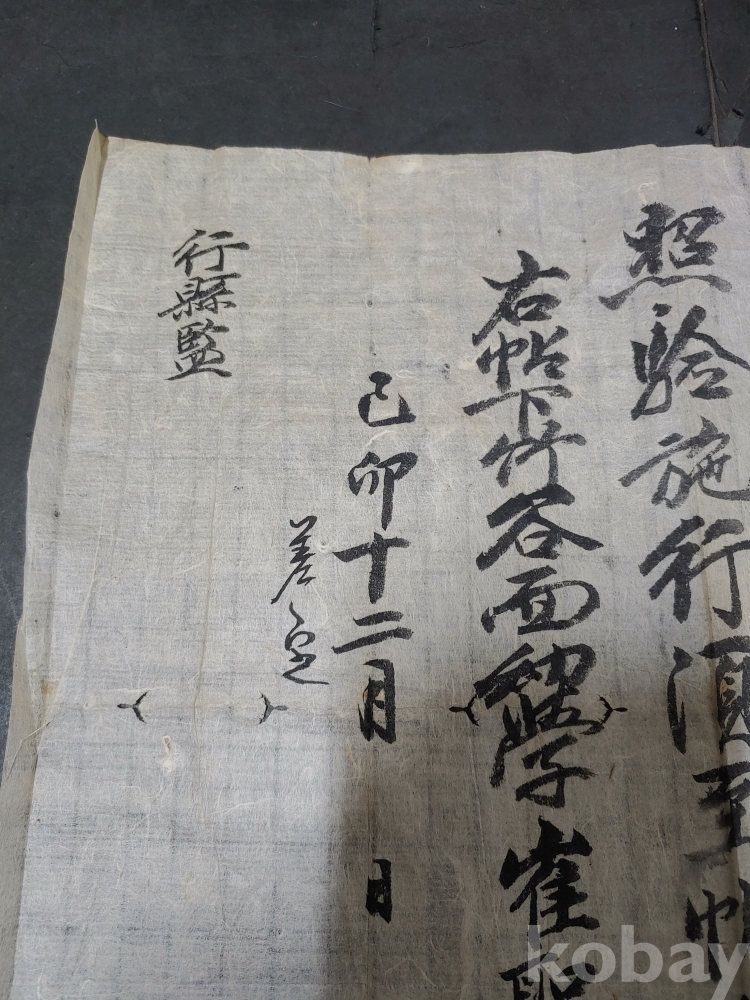 照驗施行須至帖
右帖下竹谷面 學崔
己卯十二月 日
差定
行縣監
kobay